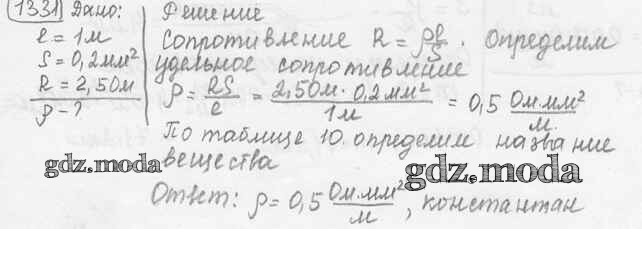 1331 Дано: Решение
ℓ = 1м Сопротивление R = ρℓ/S. Определим
S = 0,2мм² удельное сопротивление
R = 2,5Ом ρ = RS/ℓ = 2,5Ом · 0,2мм²/1м = 0,5 Ом·мм²/м.
ρ - ? По таблице 10 определим название
вещества
gdz.moda
gdz.moda
Ответ: ρ = 0,5 Ом·мм²/м, константан